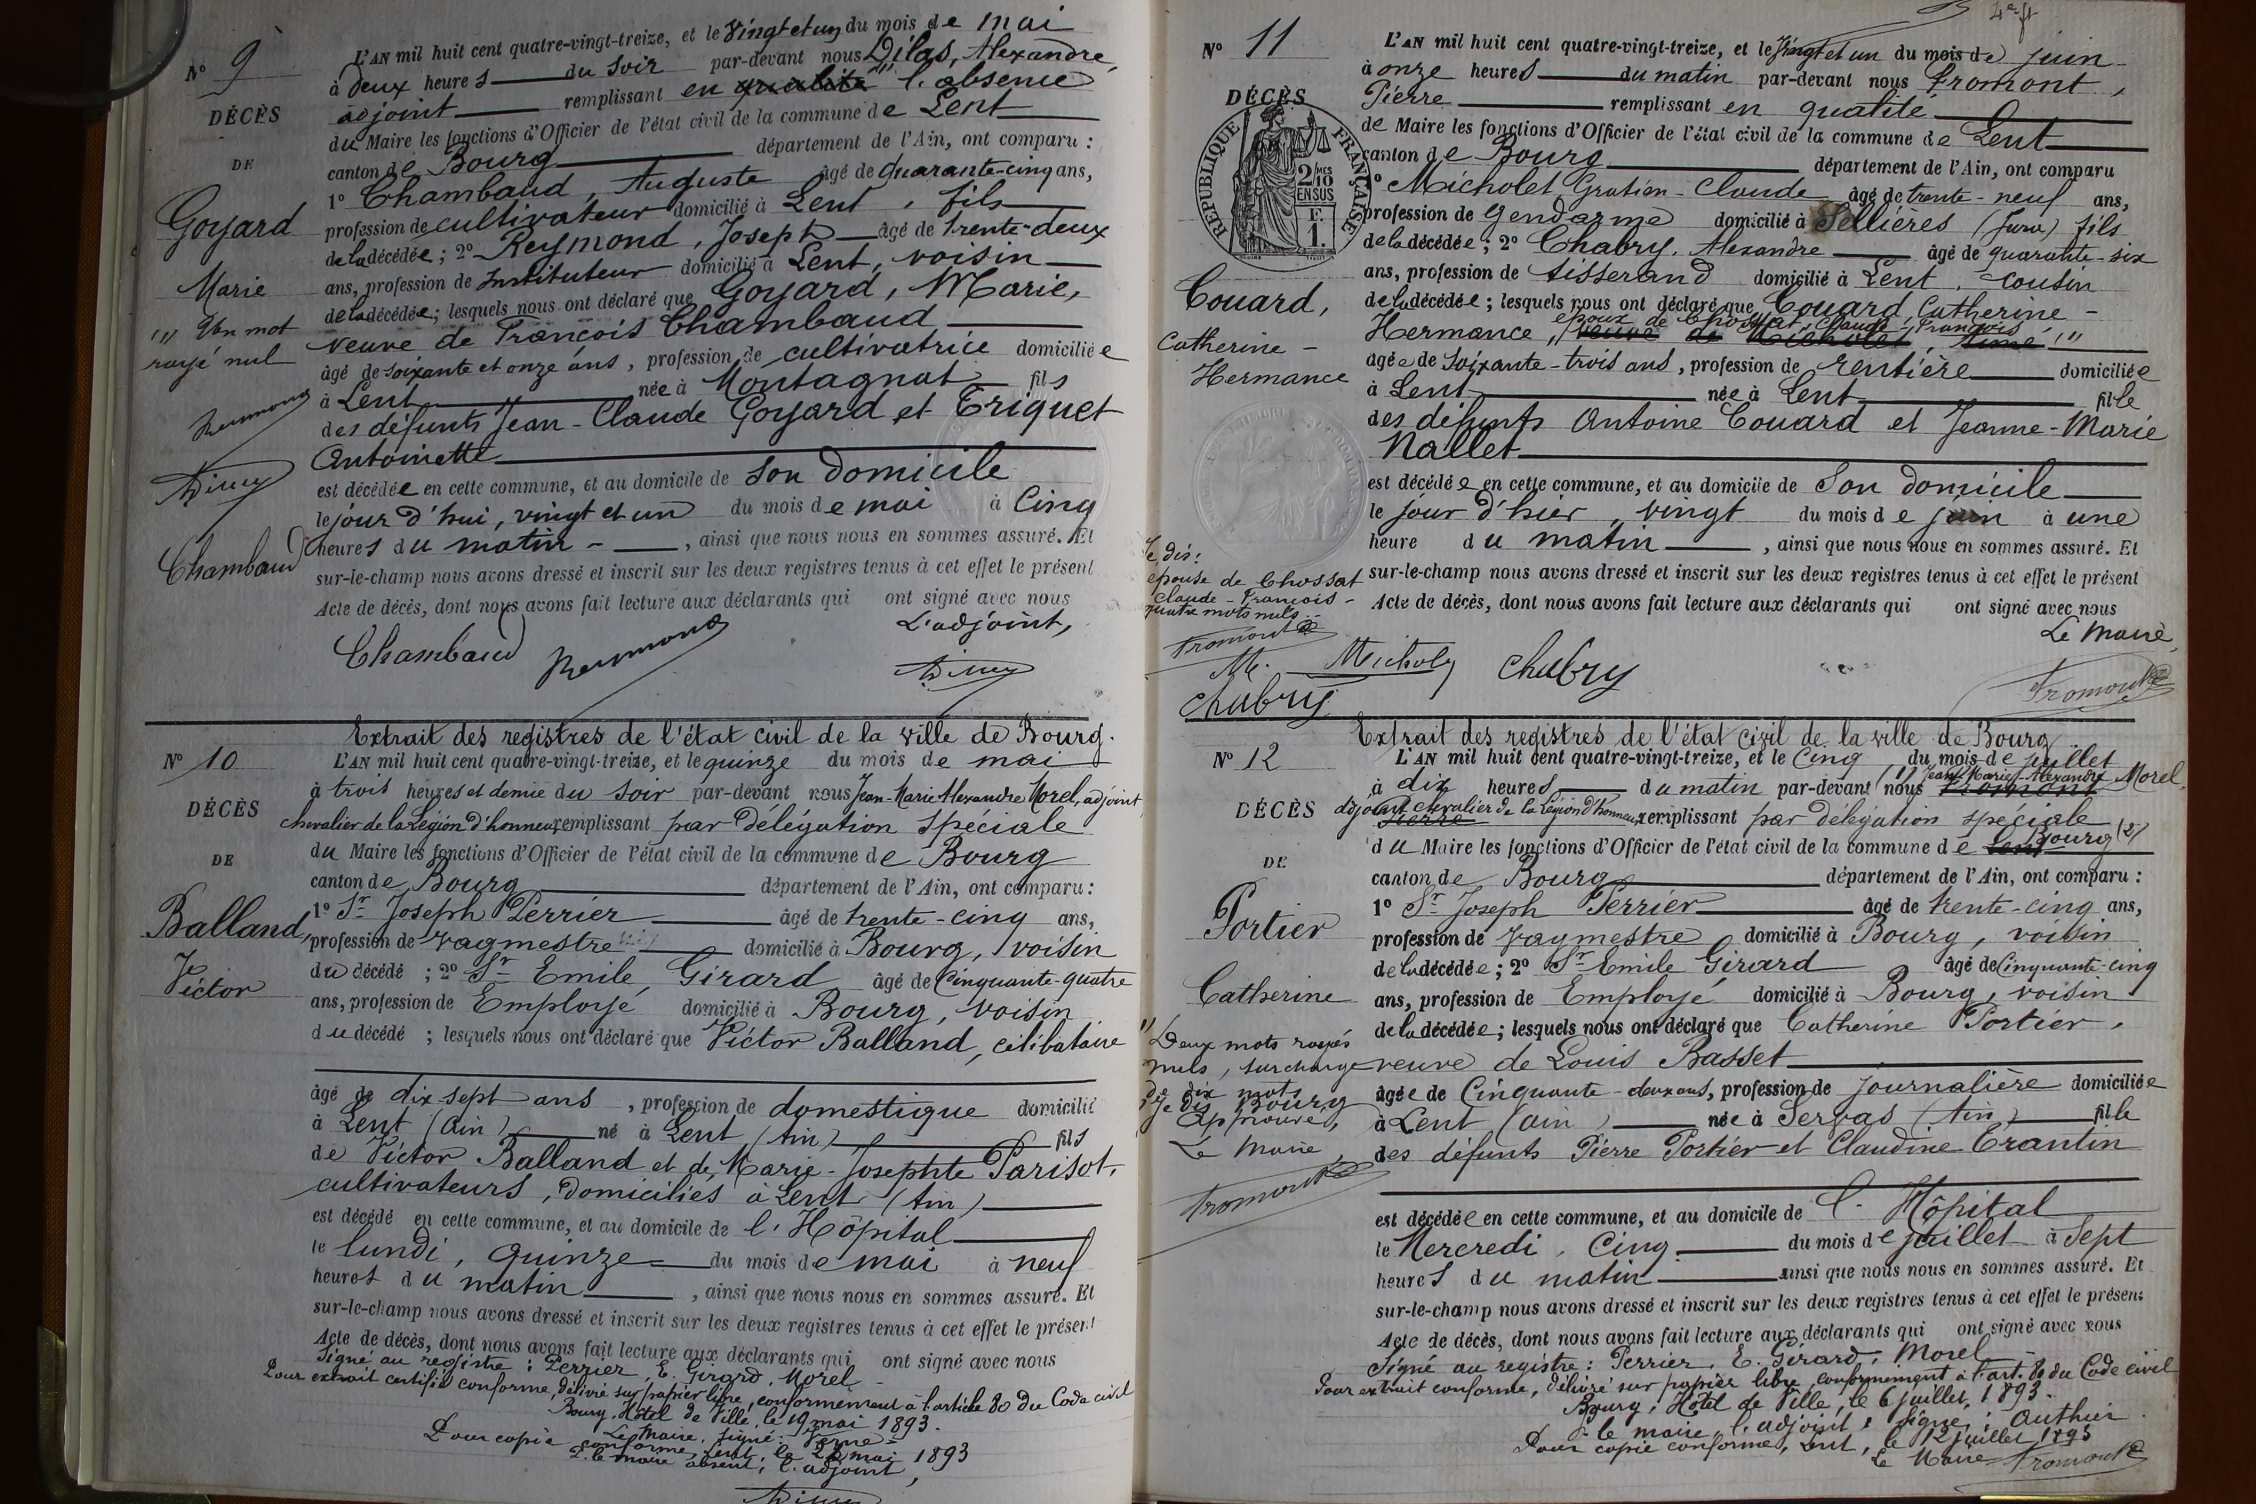 N° 9
DÉCÈS
DE
Goyard
Marie
(1) Un mot
rayé nul
Reymond
Chambaud
L'AN mil huit cent quatre-vingt-treize, et le vingt et un du mois de mai
à deux heures du soir par-devant nous Dilas, Alexandre,
adjoint remplissant en qualité (1) l'absence
du Maire les fonctions d'Officier de l'état civil de la commune de Lent
canton de Bourg département de l'Ain, ont comparu :
1° Chambaud, Auguste âgé de quarante-cinq ans,
profession de cultivateur domicilié à Lent, fils
de la décédée ; 2° Reymond, Joseph âgé de trente-deux
ans, profession de Instituteur domicilié à Lent, voisin
de la décédée ; lesquels nous ont déclaré que Goyard, Marie,
veuve de François Chambaud
âgé de soixante et onze ans, profession de cultivatrice domiciliée
à Lent née à Montagnat fils
des défunts Jean-Claude Goyard et Triquet
Antoinette
est décédée en cette commune, et au domicile de son domicile
le jour d'hui, vingt et un du mois de mai à Cinq
heures du matin - , ainsi que nous nous en sommes assuré. Et
sur-le-champ nous avons dressé et inscrit sur les deux registres tenus à cet effet le présent
Acte de décès, dont nous avons fait lecture aux déclarants qui ont signé avec nous
L'adjoint,
Chambaud Reymond
Extrait des registres de l'état civil de la ville de Bourg.
N° 10
DÉCÈS
DE
Balland,
Je
Victor
L'AN mil huit cent quatre-vingt-treize, et le quinze du mois de mai
à trois heures et demie du soir par-devant nous Jean-Marie Alexandre Morel, adjoint
chevalier de la Légion d'honneur, remplissant par délégation spéciale
du Maire les fonctions d'Officier de l'état civil de la commune de Bourg
canton de Bourg département de l'Ain, ont comparu :
1° Sr Joseph Perrier âgé de trente-cinq ans,
profession de vagmestre domicilié à Bourg, voisin
du décédé ; 2° Sr Emile Girard âgé de Cinquante-quatre
ans, profession de Employé domicilié à Bourg, voisin
du décédé ; lesquels nous ont déclaré que Victor Balland, célibataire
âgé de dix sept ans, profession de domestique domicilié
à Lent (Ain) né à Lent (Ain) fils
de Victor Balland et de Marie-Josephte Parisot,
cultivateurs, domiciliés à Lent (Ain)
est décédé en cette commune, et au domicile de l'Hôpital
le lundi, quinze du mois de mai à neuf
heures du matin , ainsi que nous nous en sommes assuré. Et
sur-le-champ nous avons dressé et inscrit sur les deux registres tenus à cet effet le présent
Acte de décès, dont nous avons fait lecture aux déclarants qui ont signé avec nous
Signé au registre : Perrier, E. Girard, Morel
Pour extrait certifié conforme, délivré sur papier libre, conformément à l'article 80 du Code civil
Bourg, Hôtel de Ville, le 19 mai 1893.
Le Maire, signé: Verne
Pour copie conforme, Lent, le 28 mai 1893
P. le maire absent, l'adjoint,
4e ft
N° 11
DÉCÈS
REPUBLIQUE FRANÇAISE
2/10MES EN SUS
F. 1.
Couard,
Catherine -
Hermance
Je dis :
épouse de Chossat
Claude-François -
quatre mots nuls.
Fromont
M.
Chabry
L'AN mil huit cent quatre-vingt-treize, et le vingt et un du mois de juin
à onze heures du matin par-devant nous Fromont,
Pierre remplissant en qualité
de Maire les fonctions d'Officier de l'état civil de la commune de Lent
canton de Bourg département de l'Ain, ont comparu
1° Micholet Gratien-Claude âgé de trente-neuf ans,
profession de Gendarme domicilié à Sellières (Jura) fils
de la décédée ; 2° Chabry, Alexandre âgé de quarante-six
ans, profession de tisserand domicilié à Lent, cousin
de la décédée ; lesquels nous ont déclaré que Couard, Catherine -
épouse de Chossat, Claude-François
Hermance, veuve de Micholet, Aimé (1)
âgée de soixante-trois ans, profession de rentière domiciliée
à Lent née à Lent fille
des défunts Antoine Couard et Jeanne-Marie
Nallet
est décédée en cette commune, et au domicile de son domicile
le jour d'hier, vingt du mois de juin à une
heure du matin , ainsi que nous nous en sommes assuré. Et
sur-le-champ nous avons dressé et inscrit sur les deux registres tenus à cet effet le présent
Acte de décès, dont nous avons fait lecture aux déclarants qui ont signé avec nous
Le Maire,
Micholet Chabry Fromont
Extrait des registres de l'état civil de la ville de Bourg
N° 12
DÉCÈS
DE
Portier
Catherine
(1) Deux mots rayés
nuls, surcharge
de dix mots
Je dis Bourg
Approuvé,
Le Maire,
Fromont
L'AN mil huit cent quatre-vingt-treize, et le Cinq du mois de juillet
à dix heures du matin par-devant nous (1) Jean-Marie-Alexandre Morel,
Fromont
adjoint chevalier de la Légion d'honneur, remplissant par délégation spéciale
Pierre
du Maire les fonctions d'Officier de l'état civil de la commune de Lent Bourg (2)
canton de Bourg département de l'Ain, ont comparu :
1° Sr Joseph Perrier âgé de trente-cinq ans,
profession de vagmestre domicilié à Bourg, voisin
de la décédée ; 2° Sr Emile Girard âgé de Cinquante-cinq
ans, profession de Employé domicilié à Bourg, voisin
de la décédée ; lesquels nous ont déclaré que Catherine Portier,
veuve de Louis Basset
âgée de Cinquante-deux ans, profession de journalière domiciliée
à Lent (Ain) née à Servas (Ain) fille
des défunts Pierre Portier et Claudine Trantin
est décédée en cette commune, et au domicile de l'Hôpital
le Mercredi, Cinq du mois de juillet à Sept
heures du matin ainsi que nous nous en sommes assuré. Et
sur-le-champ nous avons dressé et inscrit sur les deux registres tenus à cet effet le présent
Acte de décès, dont nous avons fait lecture aux déclarants qui ont signé avec nous
Signé au registre : Perrier, E. Girard, Morel
Pour extrait conforme, délivré sur papier libre, conformément à l'art. 80 du Code civil
Bourg, Hôtel de Ville, le 6 juillet, 1893.
P. le maire, l'adjoint, signé : Authier.
Pour copie conforme, Lent, le 12 juillet 1893
Le Maire Fromont